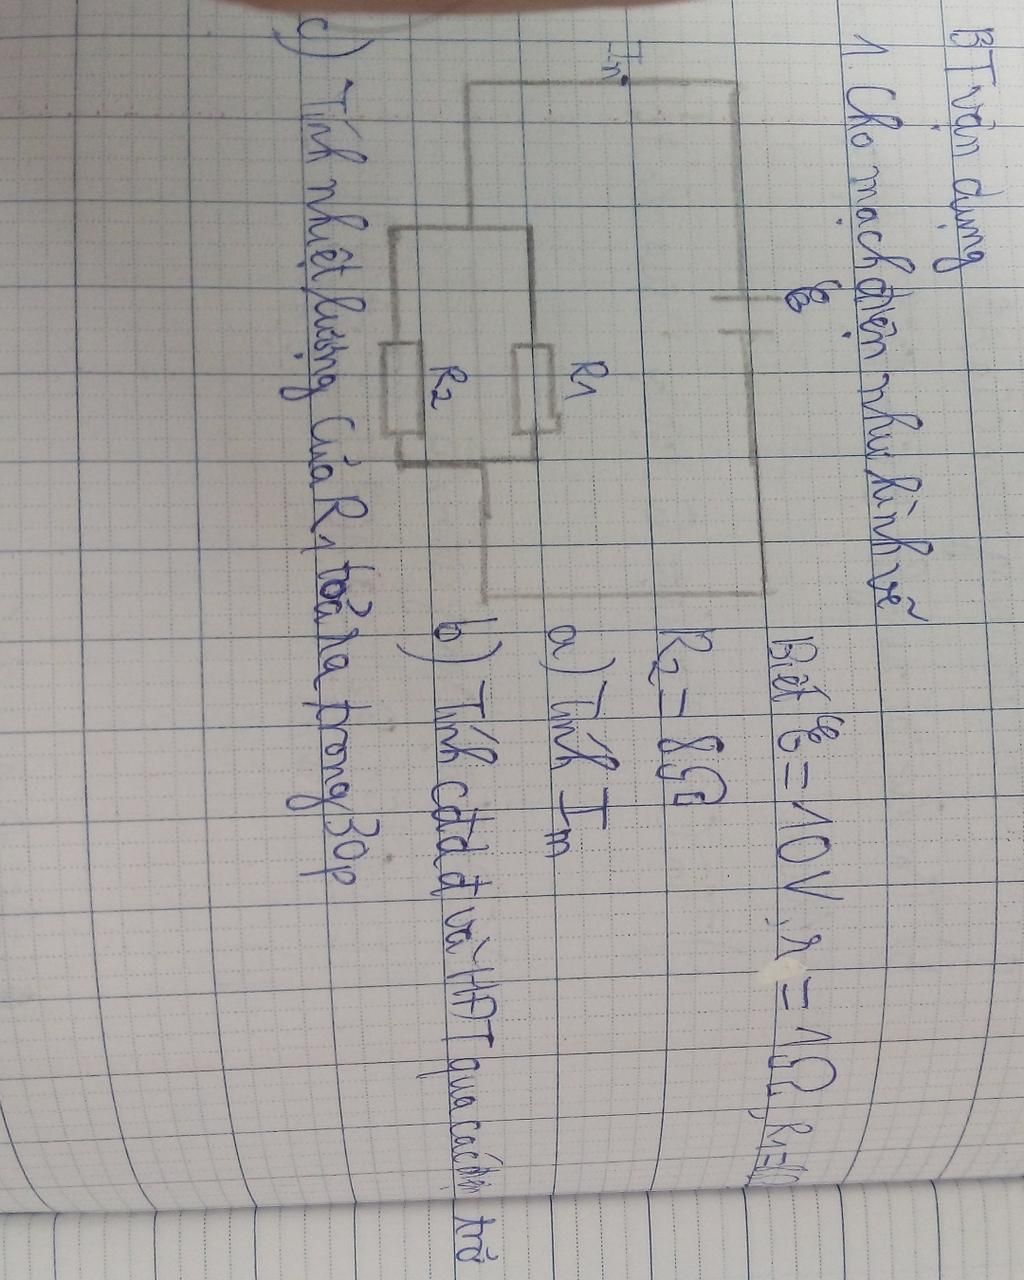 BT vận dụng
1. Cho mạch điện như hình vẽ
ℰ
Im
R1
R2
Biết ℰ = 10V, r = 1Ω, R1=
R2 = 8Ω
a) Tính Im
b) Tính cđdđ và HĐT qua các điện trở
c) Tính nhiệt lượng của R1 toả ra trong 30p